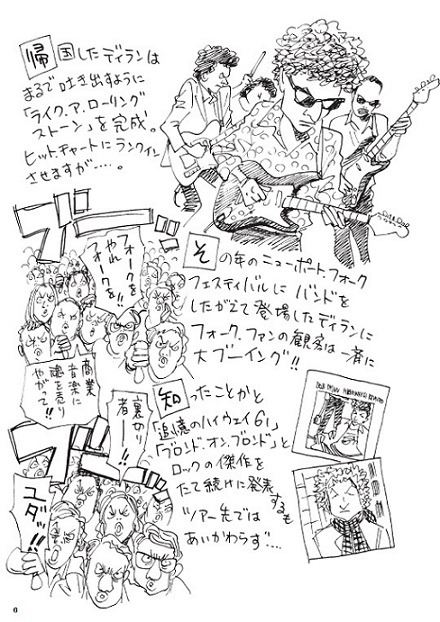 帰国したディランは
まるで吐き出すように
「ライク.ア.ローリング
ストーン」を完成。
ヒットチャートにランクイン
させますが……。
ブーー
フォークを
やれ
フォークを!!
その年のニューポートフォーク
フェスティバルに バンドを
したがえて登場したディランに
フォーク.ファンの観客は一斉に
大ブーイング!!
商業
音楽に
魂を売り
やがって!!
裏切り
者ーー!!
知ったことかと
「追憶のハイウェイ61」
「ブロンド.オン.ブロンド」と
ロックの傑作を
たて続けに発表するも
ツアー先では
あいかわらず…..
ブーー
ユダッ!!
6